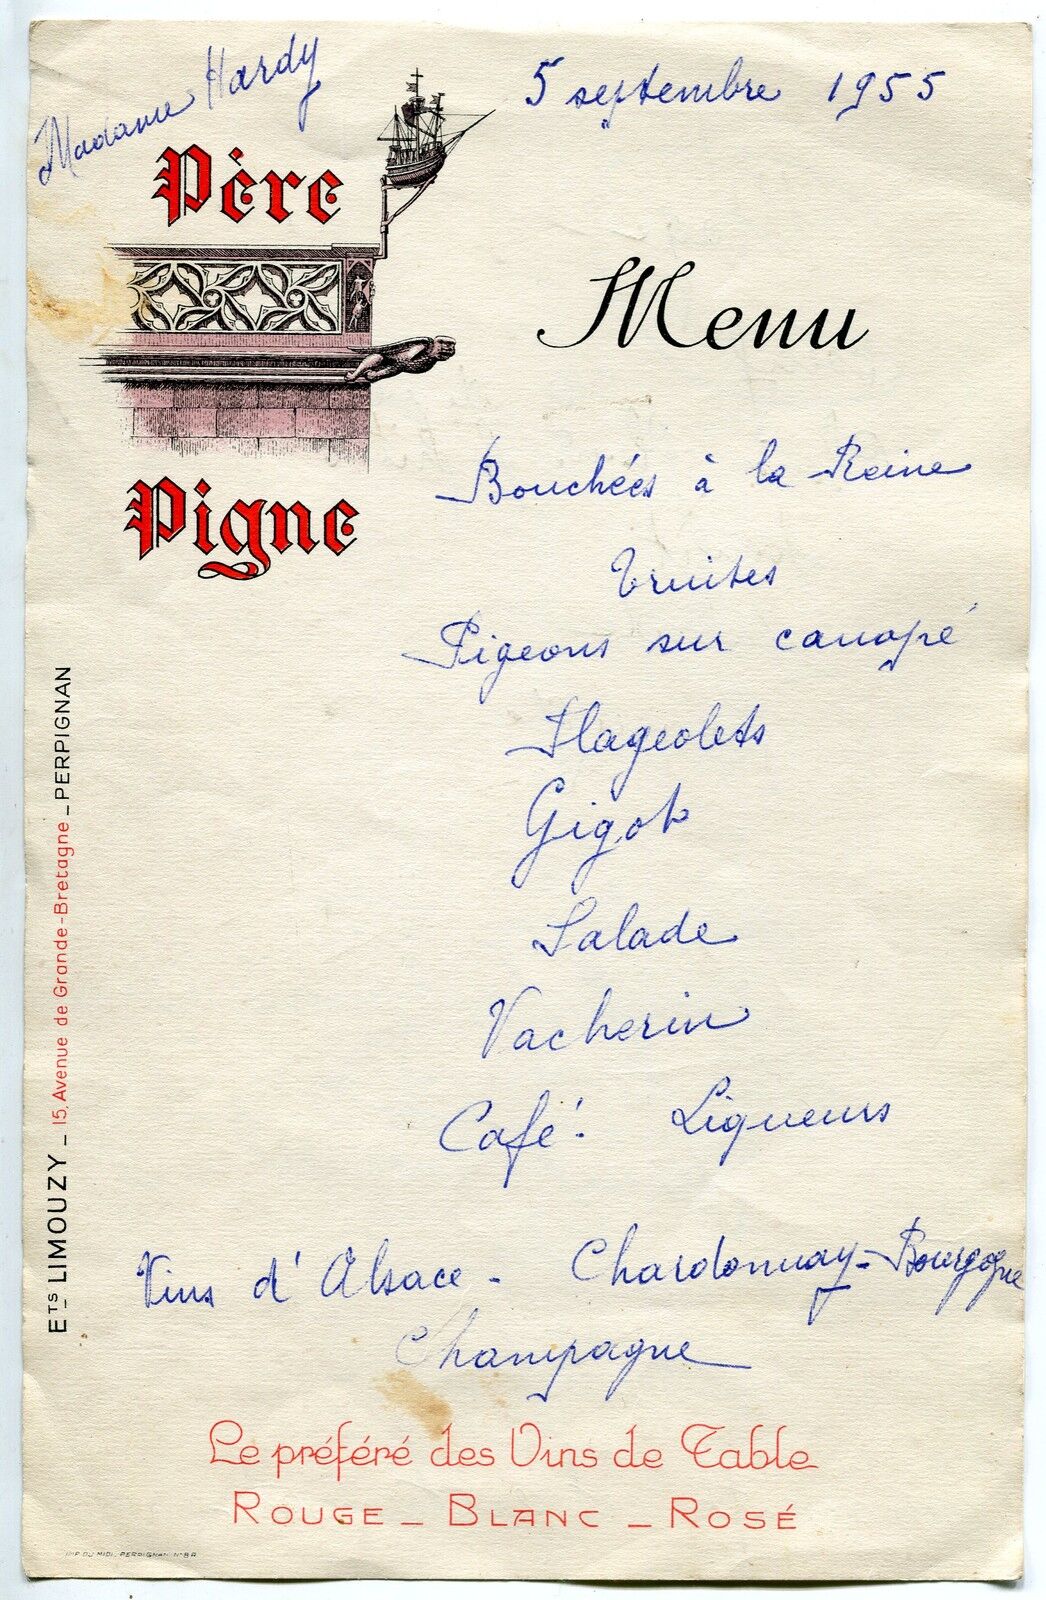 Madame Hardy
5 septembre 1955
Père
Pigne
Menu
Bouchées à la Reine
Truites
Pigeons sur canapé
Flageolets
Gigot
Salade
Vacherin
Café. Liqueurs
Vins d'Alsace - Chardonnay - Bourgogne
Champagne
Ets LIMOUZY _ 15, Avenue de Grande-Bretagne _ PERPIGNAN
Le préféré des Vins de Table
ROUGE _ BLANC _ ROSÉ
IMP DU MIDI. PERPIGNAN N° 8 A